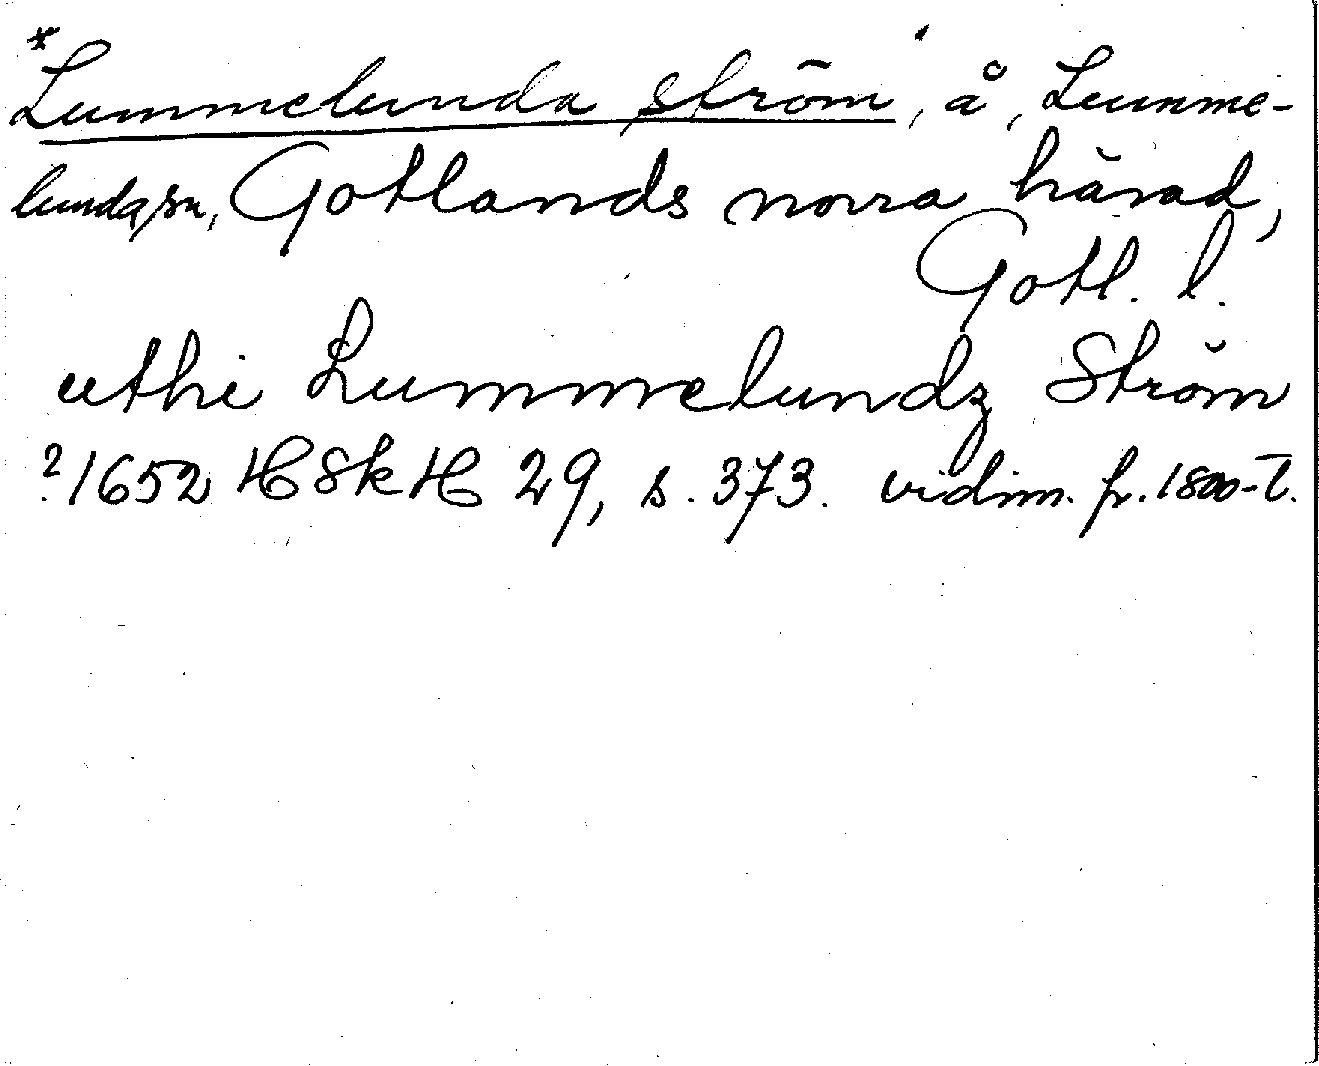 *Lummelunda ström, å, Lumme-
lunda sn, Gotlands norra härad,
Gotl. l.
uthi Lummelundz Ström
?1652 HSkH 29, s. 373. vidim. fr. 1800-t.